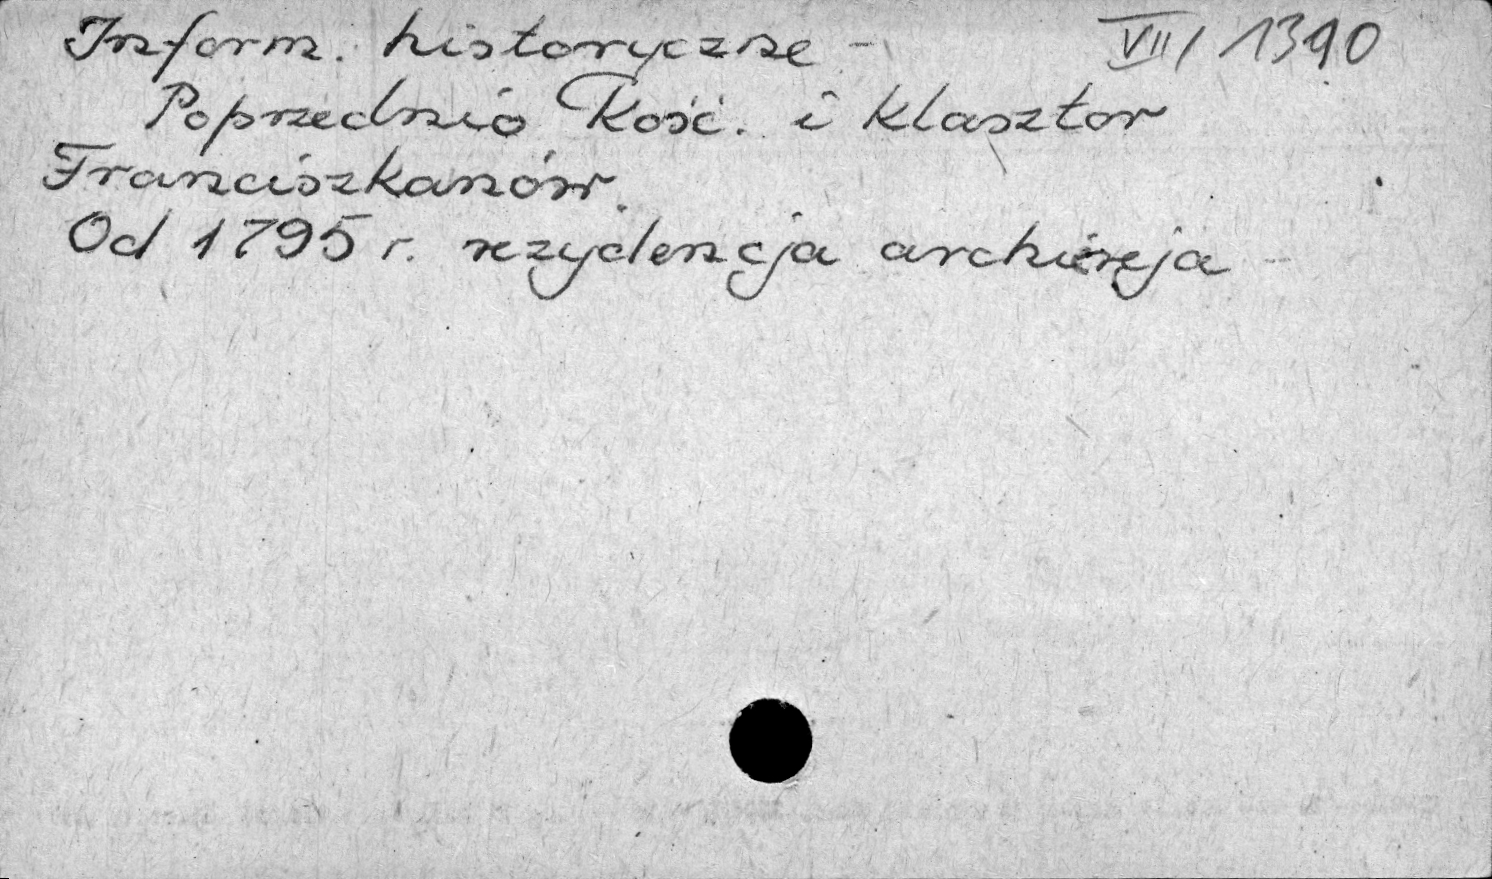 Inform. historyczne - VII/1390
Poprzednio Kość. i klasztor
Franciszkanów.
Od 1795 r. rezydencja archiereja -